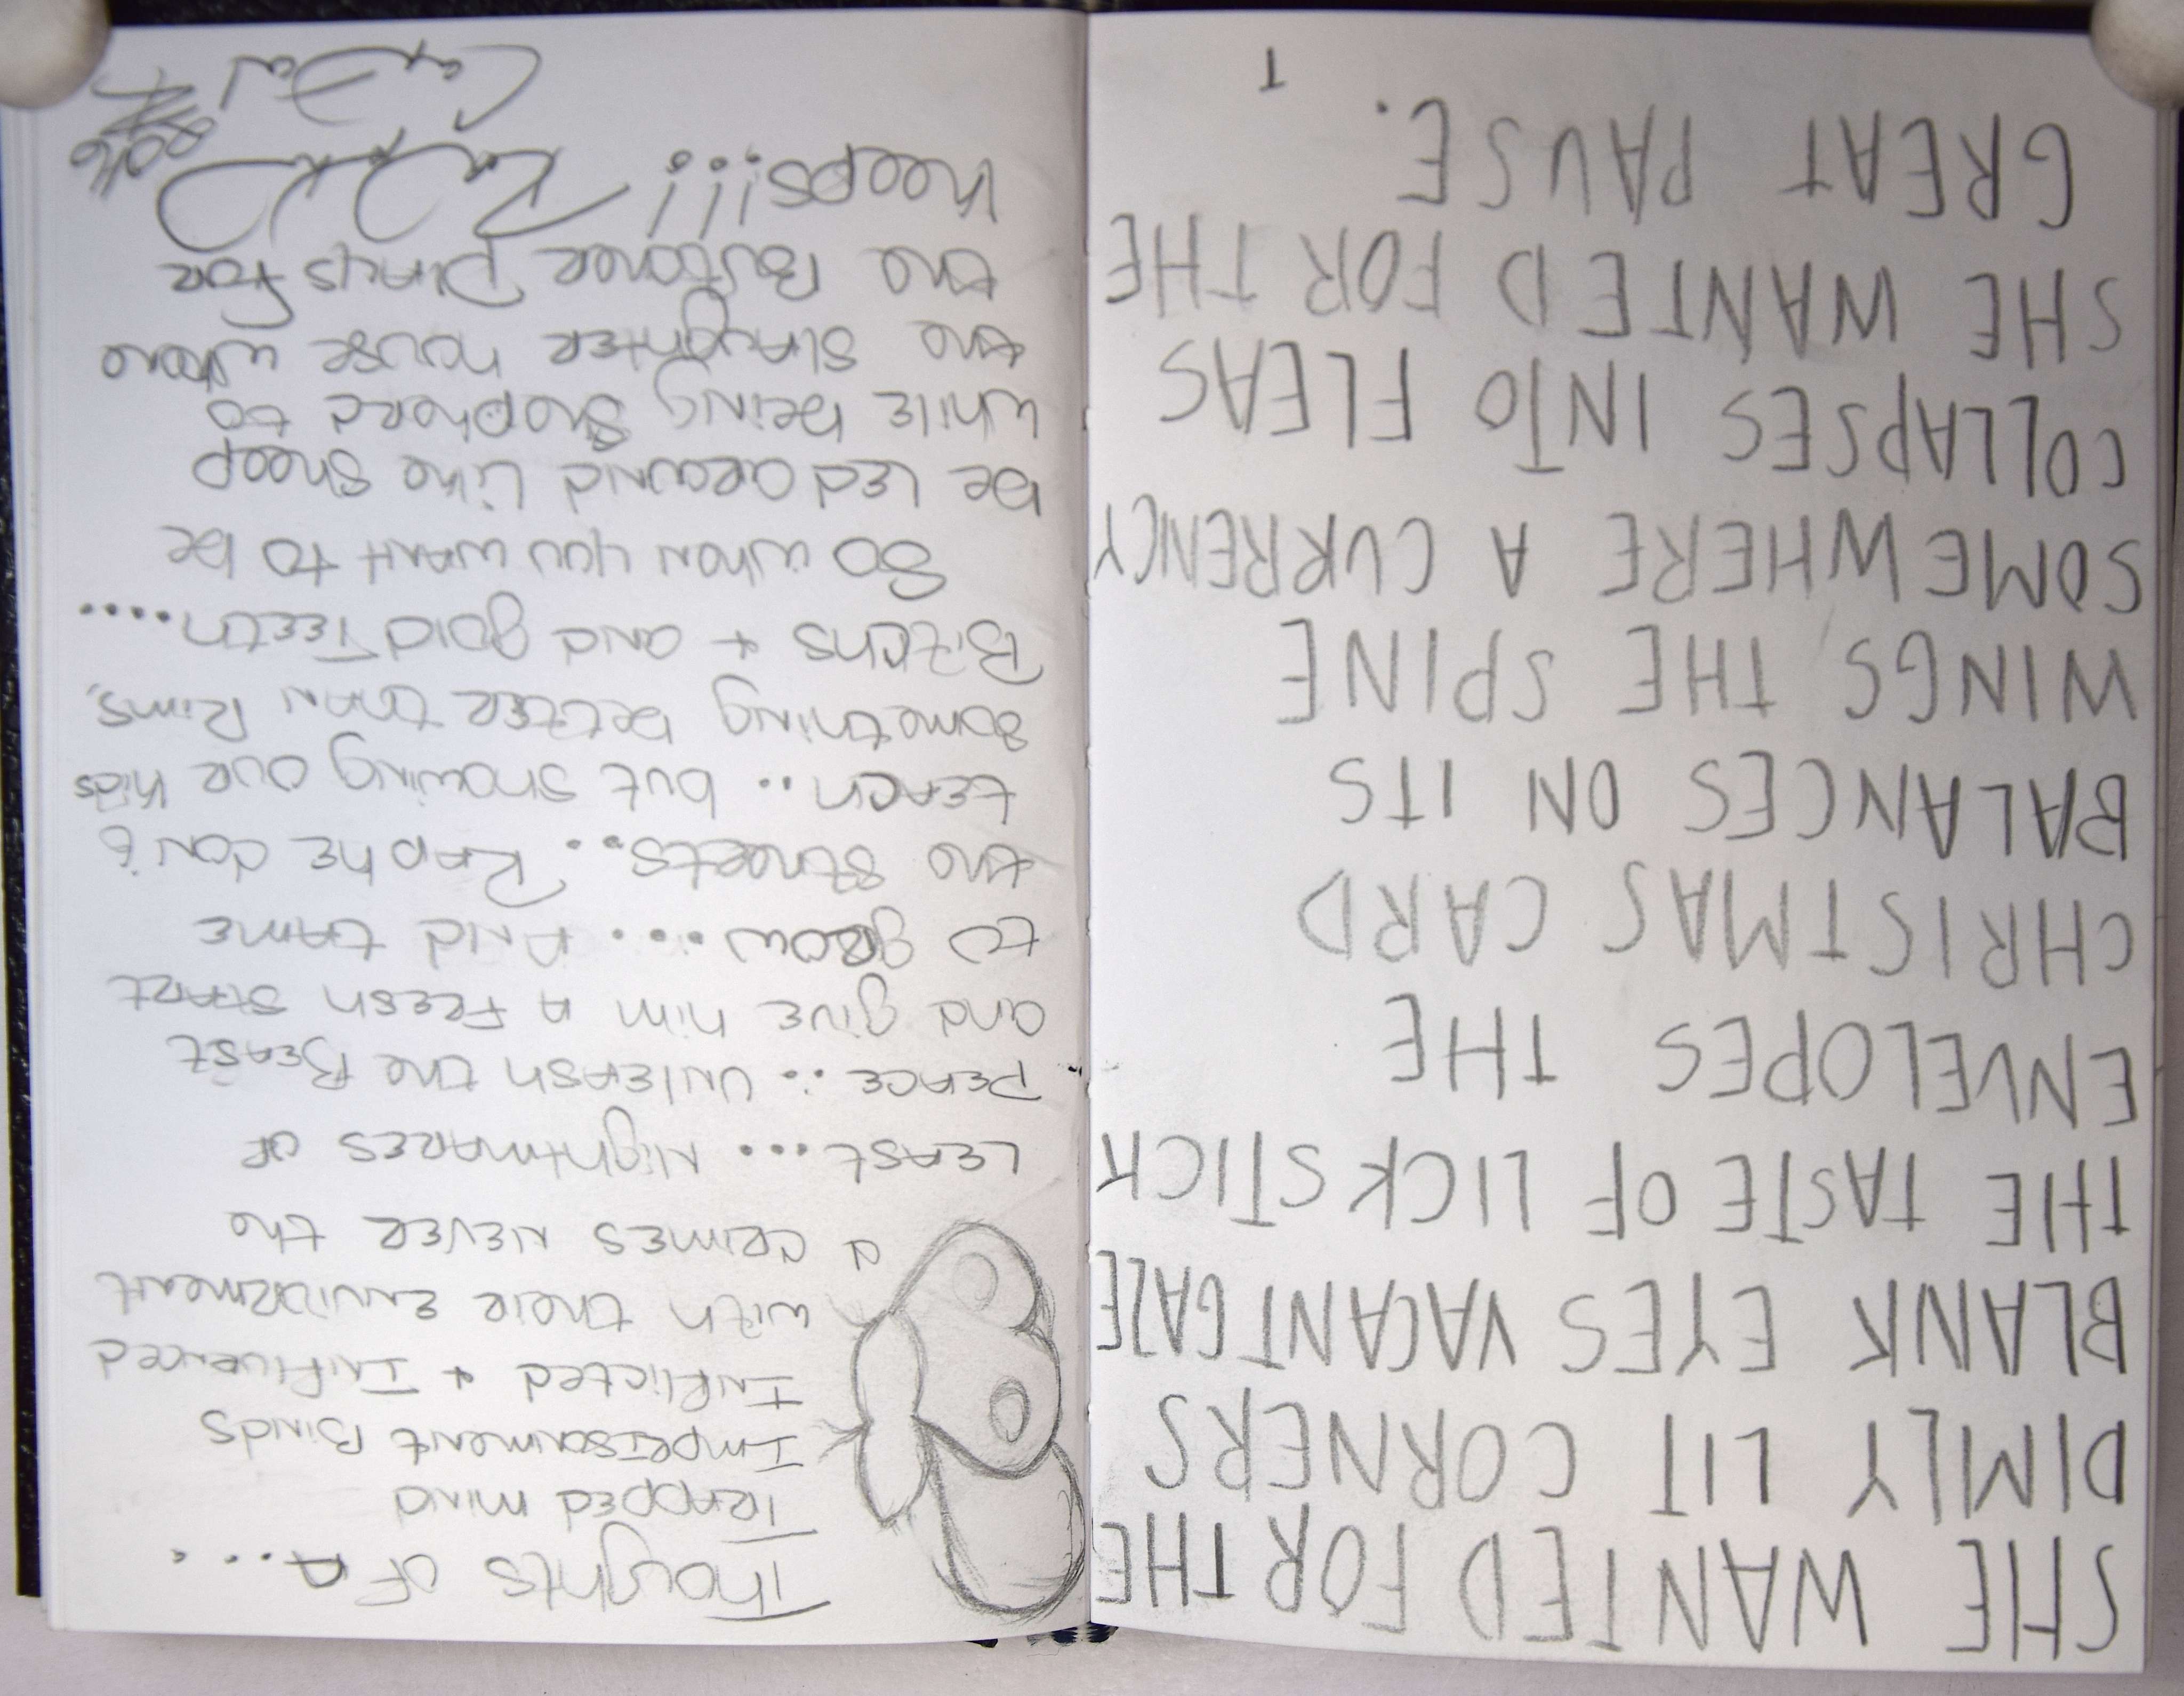 SHE WANTED FOR THE
DIMLY LIT CORNERS
BLANK EYES VACANT GAZE
THE TASTE OF LICK STICK
ENVELOPES THE
CHRISTMAS CARD
BALANCES ON ITS
WINGS THE SPINE
SOMEWHERE A CURRENCY
COLLAPSES INTO FLEAS
SHE WANTED FOR THE
GREAT PAUSE.
T
Thoughts OF A....
Trapped mind
Imprisonment Binds
Inflicted + Influenced
with their Envirment
& crimes NEVER the
LEAST.... Nightmares OF
PEACE... UNLEASH the BEAST
and give him A Fresh START
to grow.... And tame
the streets... Raphe don't
teach.. but showing our kids
something better than Rims,
Bitchs + and gold Teeth.....
So when you want to be
be Led around Like sheep
while being Shepherd to
the slaughter house where
the Butcher plays for
keeps!!!